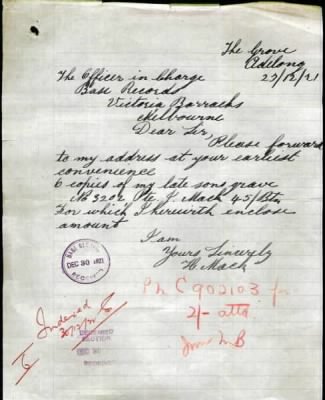 The Grove
Adelong
22/12/21
The Officer in Charge
Base Records
Victoria Barracks
Melbourne
Dear Sir,
Please forward
to my address at your earliest
convenience
6 copies of my late sons grave
No 3202 Pte. J. Mack 45/Btn
For which I herewith enclose
amount
I am
Yours Sincerely
H. Mack
BASE RECORDS
DEC 30 1921
RECEIVED
Ph C 902103 for
2/- attd.
Indexed
SECTION
DEC 30
RECEIVED